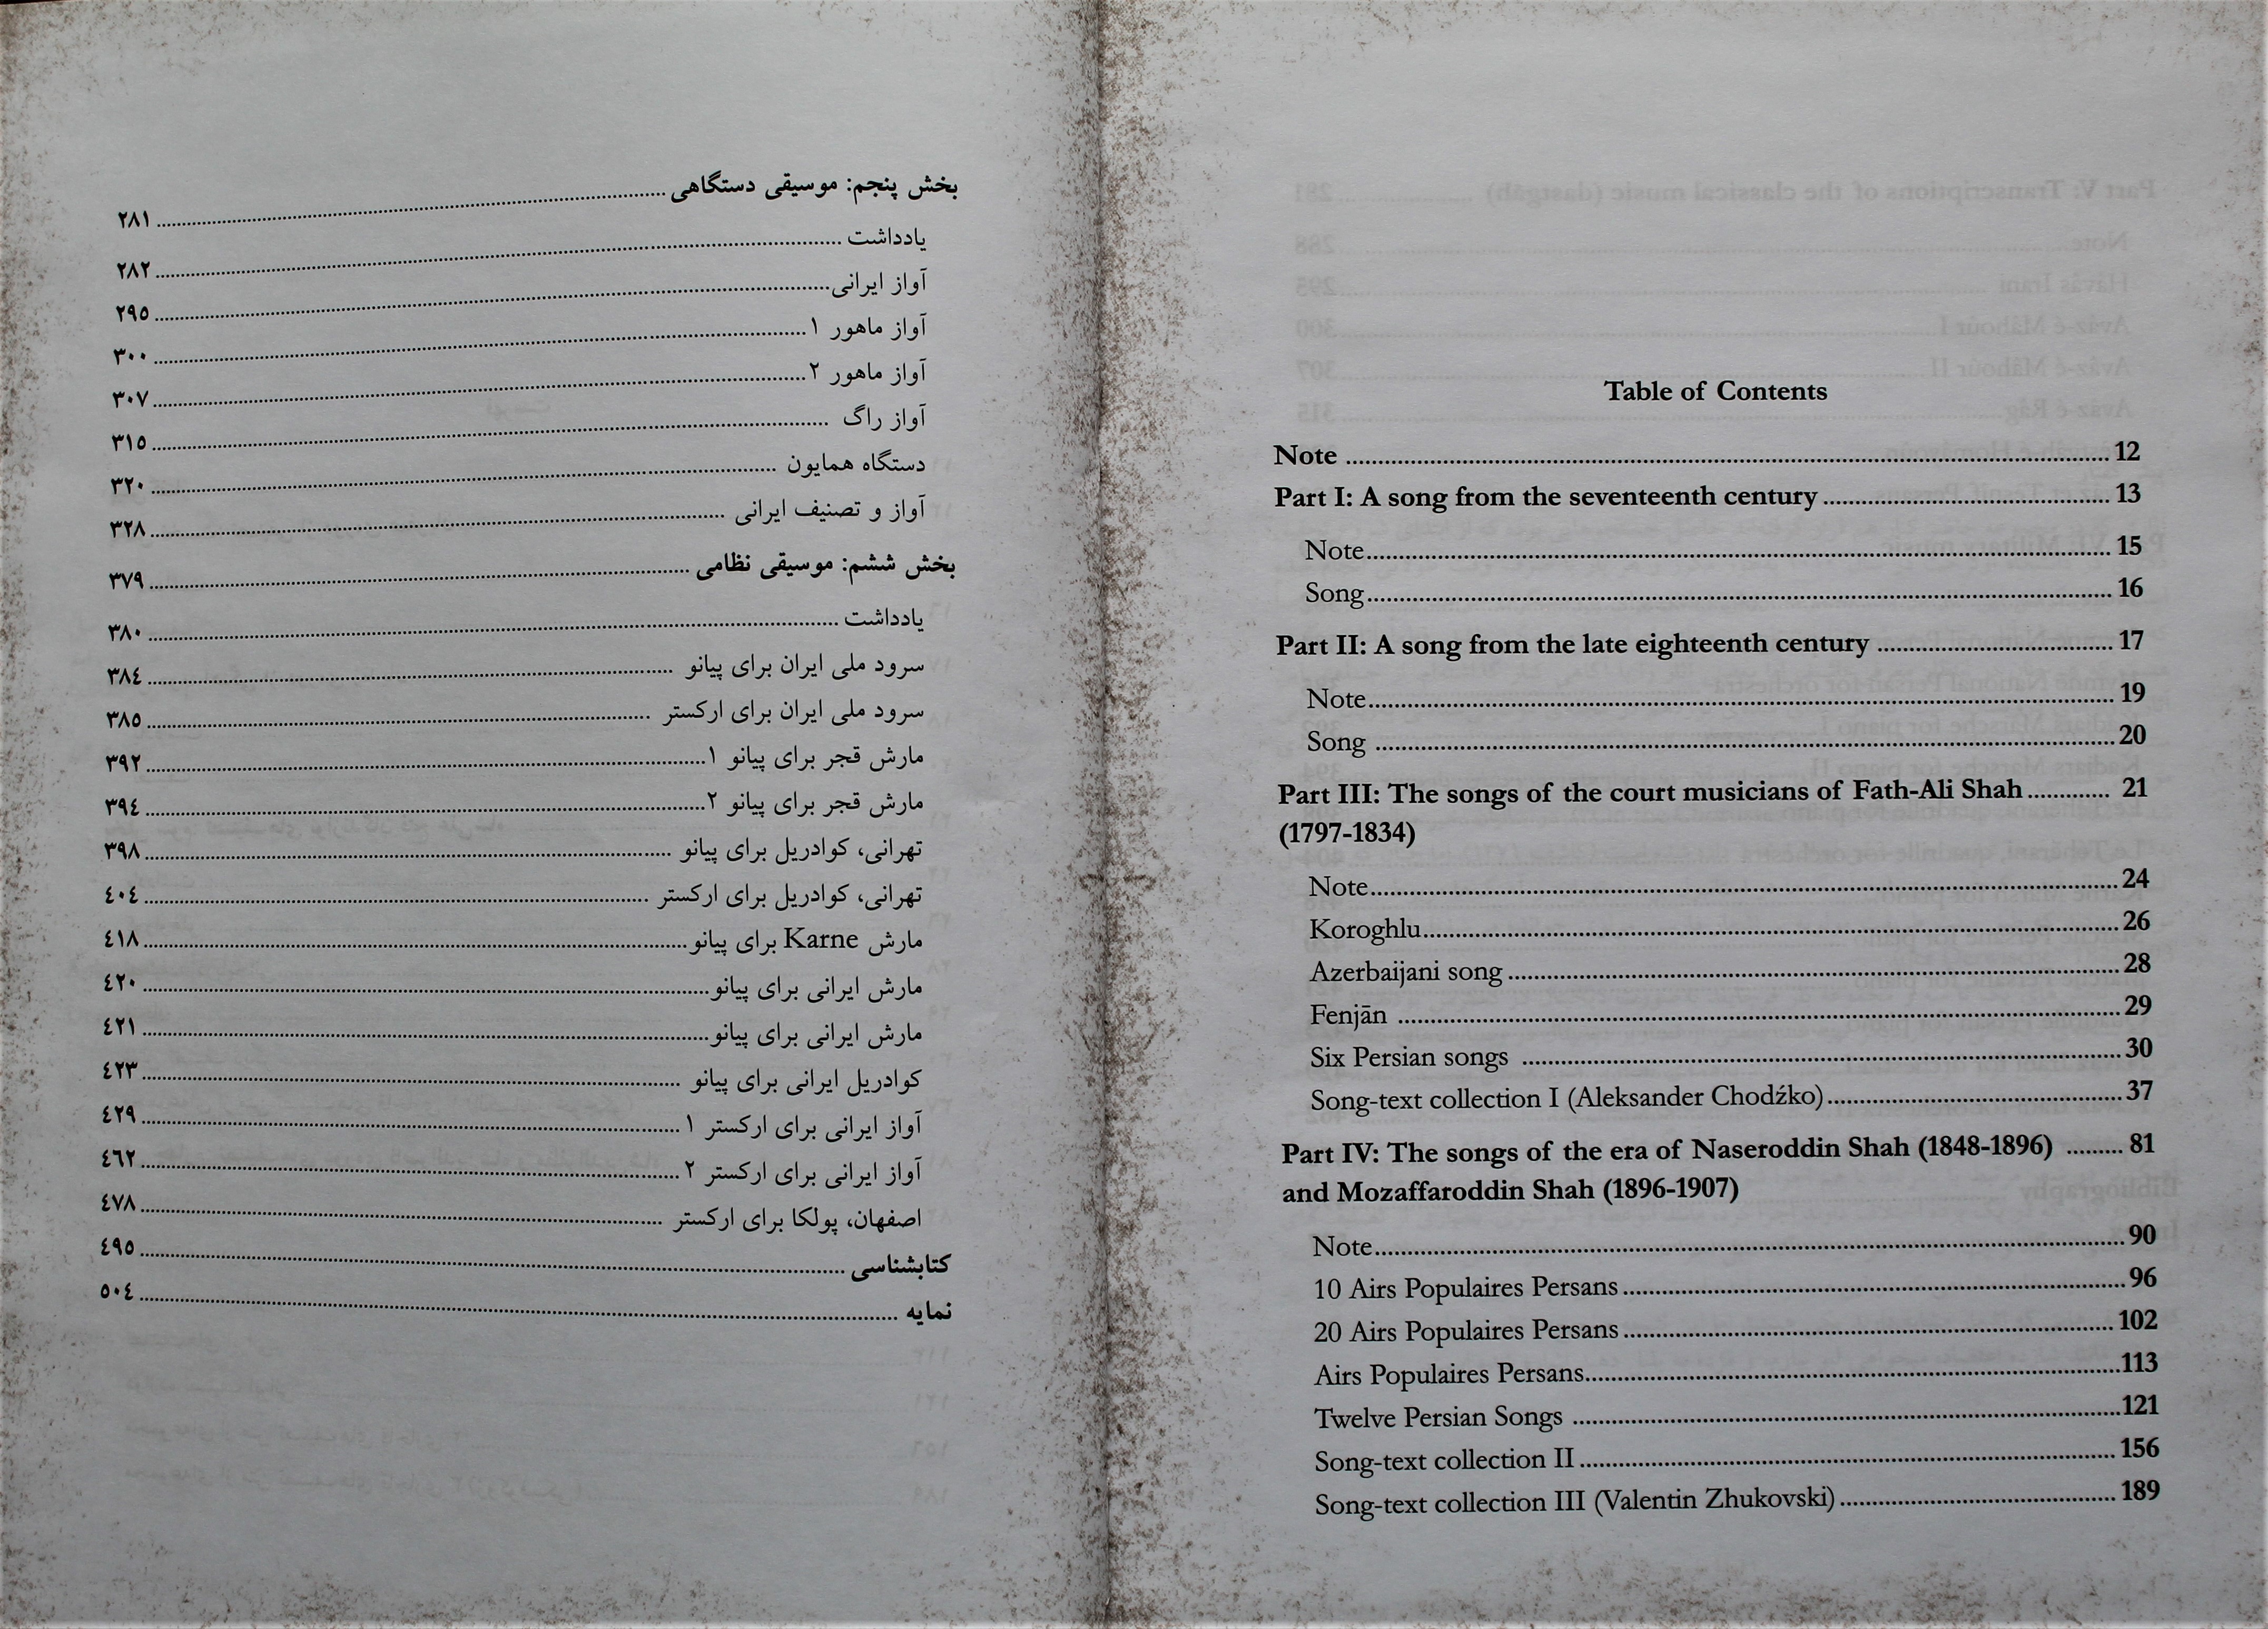 بخش پنجم: موسیقی دستگاهی ........ ۲۸۱
یادداشت ........ ۲۸۲
آواز ایرانی ........ ۲۹۵
آواز ماهور ۱ ........ ۳۰۰
آواز ماهور ۲ ........ ۳۰۷
آواز راگ ........ ۳۱۵
دستگاه همایون ........ ۳۲۰
آواز و تصنیف ایرانی ........ ۳۲۸
بخش ششم: موسیقی نظامی ........ ۳۷۹
یادداشت ........ ۳۸۰
سرود ملی ایران برای پیانو ........ ۳۸٤
سرود ملی ایران برای ارکستر ........ ۳۸۵
مارش قجر برای پیانو ۱ ........ ۳۹۲
مارش قجر برای پیانو ۲ ........ ۳۹٤
تهرانی، کوادریل برای پیانو ........ ۳۹۸
تهرانی، کوادریل برای ارکستر ........ ٤۰٤
مارش Karne برای پیانو ........ ٤۱۸
مارش ایرانی برای پیانو ........ ٤۲۰
مارش ایرانی برای پیانو ........ ٤۲۱
کوادریل ایرانی برای پیانو ........ ٤۲۳
آواز ایرانی برای ارکستر ۱ ........ ٤۲۹
آواز ایرانی برای ارکستر ۲ ........ ٤٦۲
اصفهان، پولکا برای ارکستر ........ ٤۷۸
کتابشناسی ........ ٤۹۵
نمایه ........ ۵۰٤
Table of Contents
Note ........ 12
Part I: A song from the seventeenth century ........ 13
Note ........ 15
Song ........ 16
Part II: A song from the late eighteenth century ........ 17
Note ........ 19
Song ........ 20
Part III: The songs of the court musicians of Fath-Ali Shah ........ 21
(1797-1834)
Note ........ 24
Koroghlu ........ 26
Azerbaijani song ........ 28
Fenjān ........ 29
Six Persian songs ........ 30
Song-text collection I (Aleksander Chodźko) ........ 37
Part IV: The songs of the era of Naseroddin Shah (1848-1896) ........ 81
and Mozaffaroddin Shah (1896-1907)
Note ........ 90
10 Airs Populaires Persans ........ 96
20 Airs Populaires Persans ........ 102
Airs Populaires Persans ........ 113
Twelve Persian Songs ........ 121
Song-text collection II ........ 156
Song-text collection III (Valentin Zhukovski) ........ 189